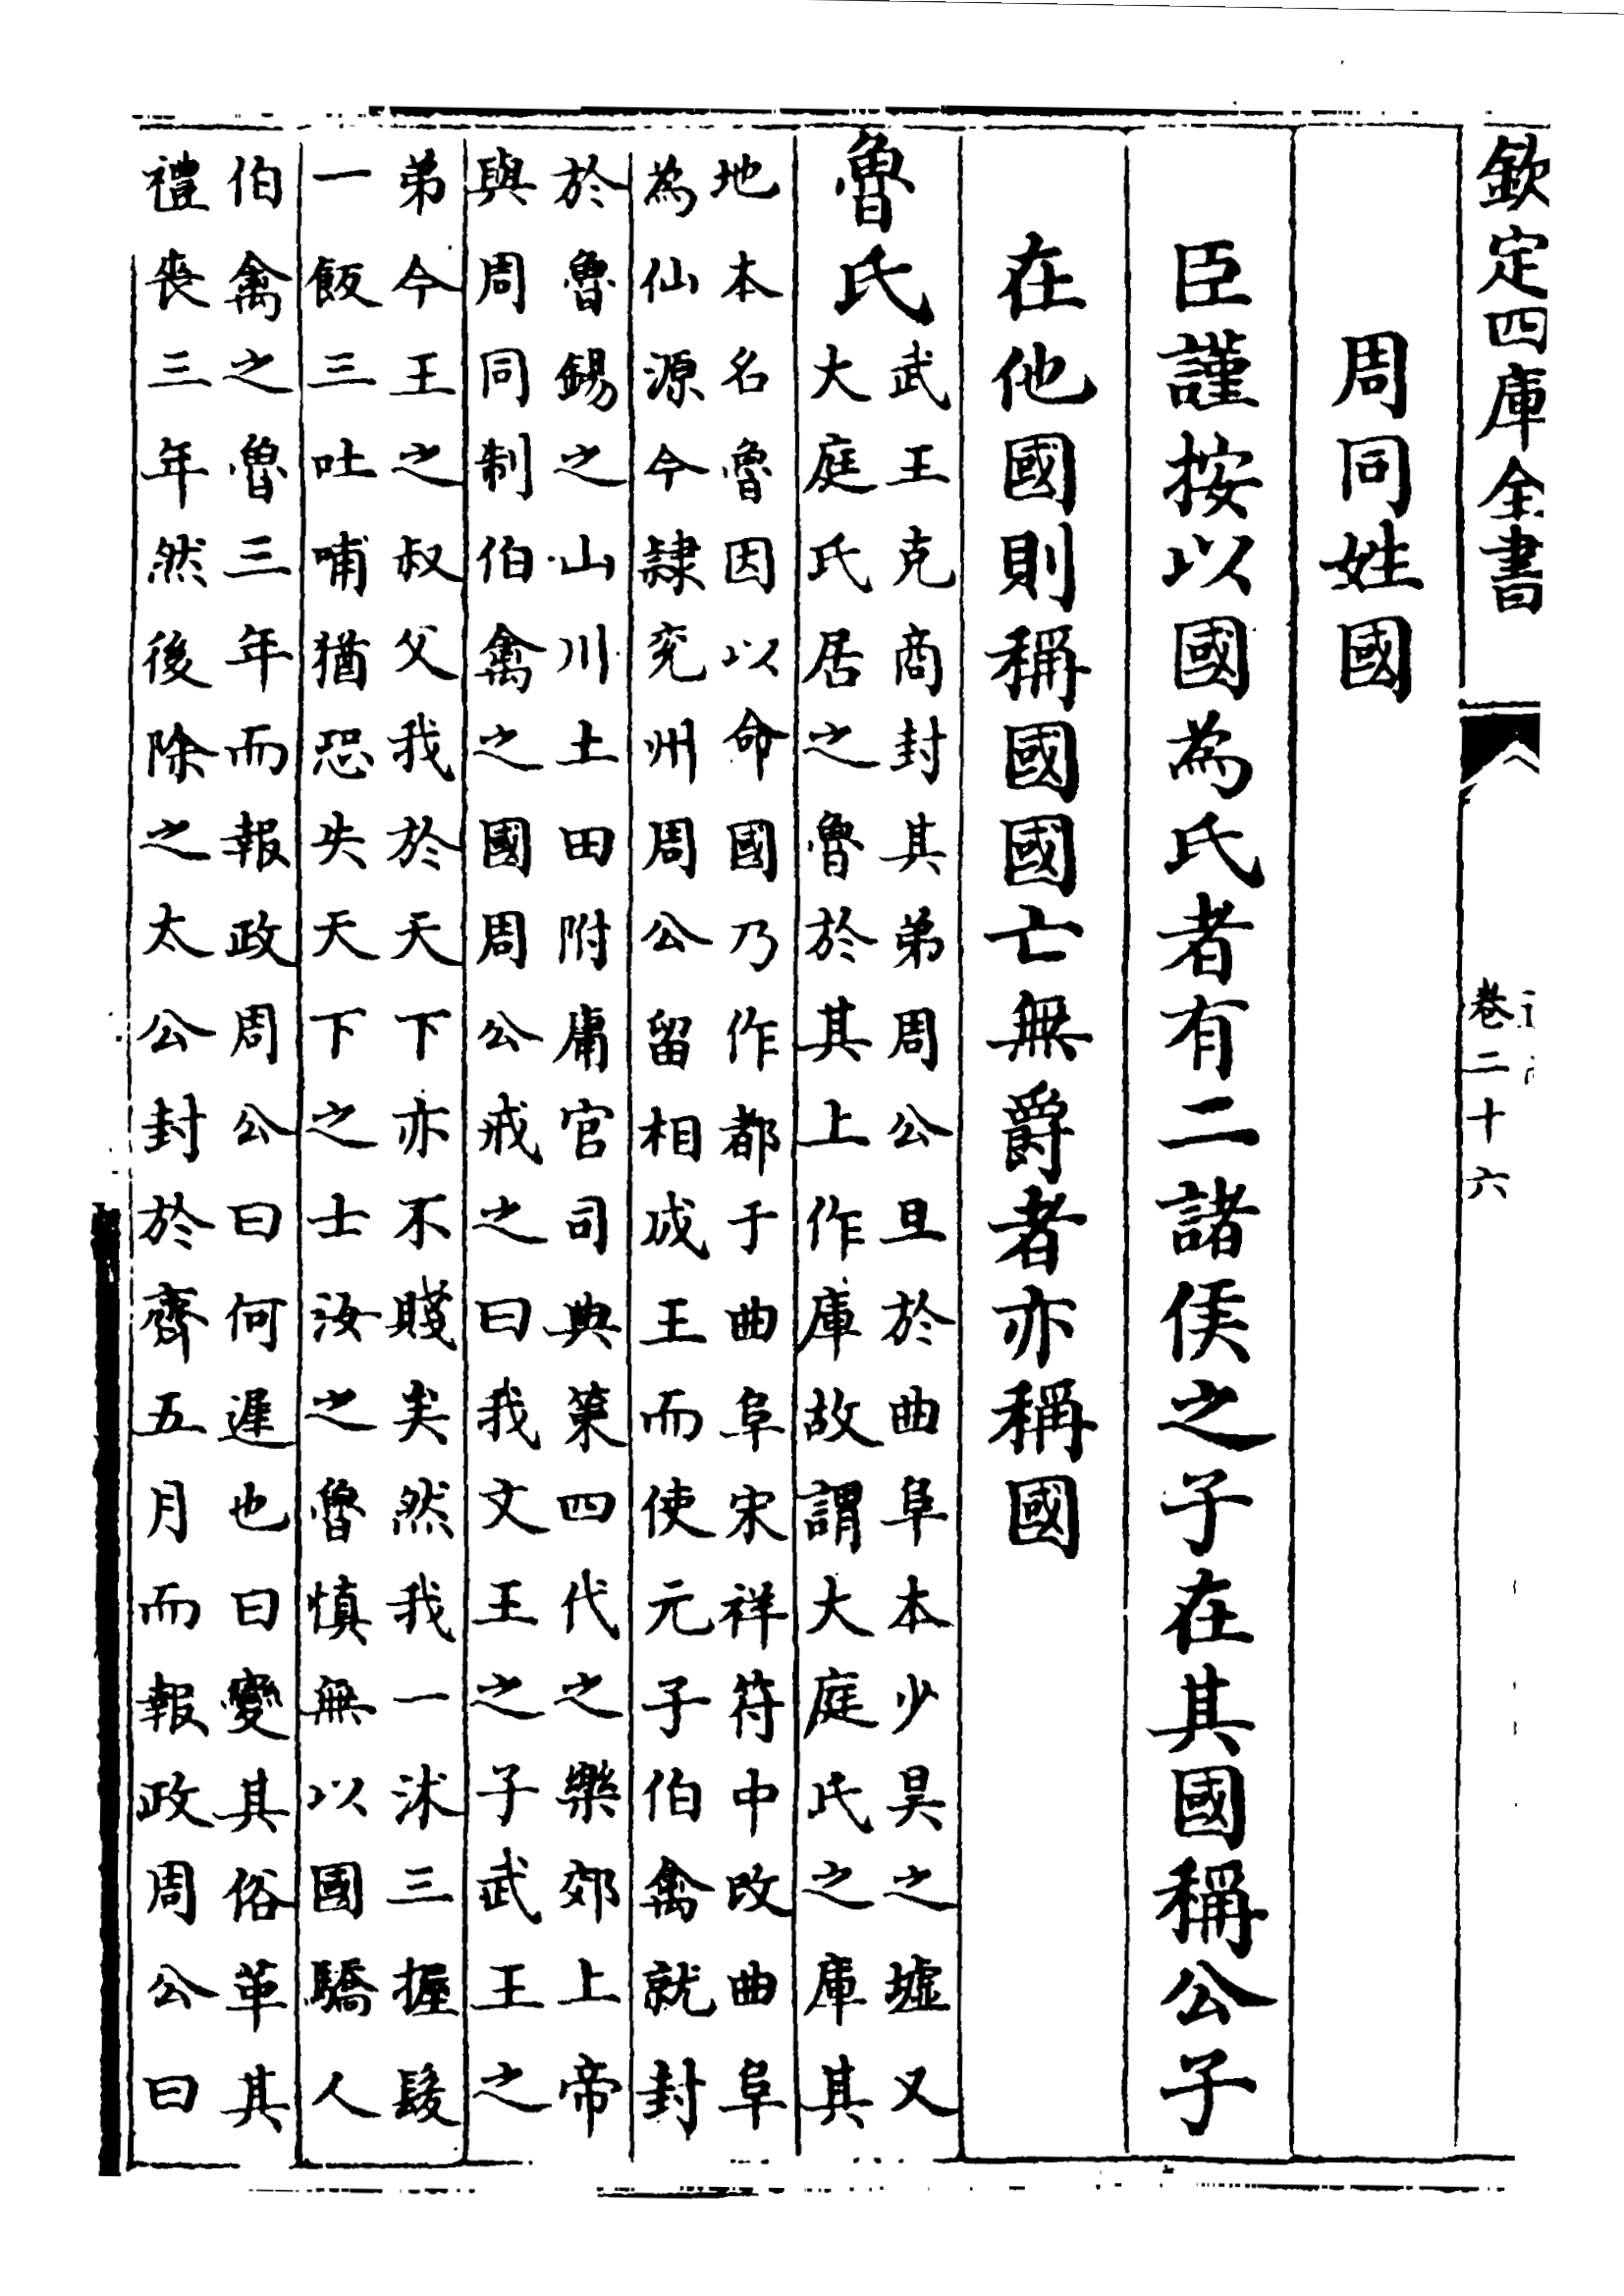 欽定四庫全書
卷二十六
周同姓國
臣謹按以國為氏者有二諸侯之子在其國稱公子
在他國則稱國國亡無爵者亦稱國
魯氏
武王克商封其弟周公旦於曲阜本少昊之墟又
大庭氏居之魯於其上作庫故謂大庭氏之庫其
地本名魯因以命國乃作都于曲阜宋祥符中改曲阜
為仙源今隸兖州周公留相成王而使元子伯禽就封
於魯錫之山川土田附庸官司典策四代之樂郊上帝
與周同制伯禽之國周公戒之曰我文王之子武王之
弟今王之叔父我於天下亦不賤矣然我一沐三握髮
一飯三吐哺猶恐失天下之士汝之魯慎無以國驕人
伯禽之魯三年而報政周公曰何遲也曰變其俗革其
禮喪三年然後除之太公封於齊五月而報政周公曰